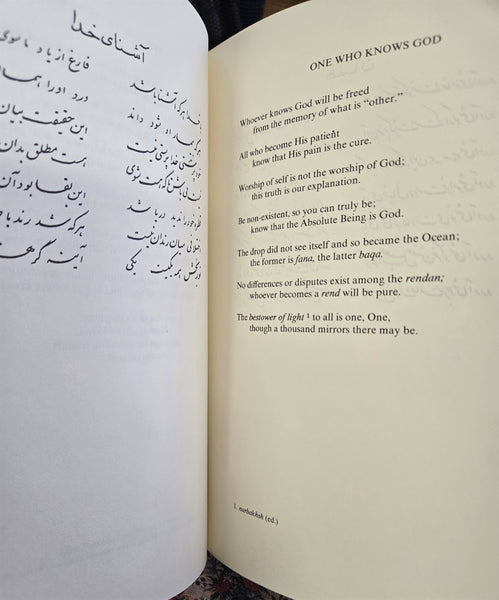 آشنای خدا
خدا هر که آشنا باشد فارغ از یاد ماسوی
او شود داند درد او را
خداپرستی نیست این حقیقت بیان
تا که هست شوی هست مطلق بدان
قطره خود را ندید دریا شد این بقا بود آن
اختلافی میان رندان نیست هر که شد رند
نوربخش همه یکیست یکی آینه گر
ONE WHO KNOWS GOD
Whoever knows God will be freed
from the memory of what is “other.”
All who become His patient
know that His pain is the cure.
Worship of self is not the worship of God;
this truth is our explanation.
Be non-existent, so you can truly be;
know that the Absolute Being is God.
The drop did not see itself and so became the Ocean;
the former is fana, the latter baqa.
No differences or disputes exist among the rendan;
whoever becomes a rend will be pure.
The bestower of light ¹ to all is one, One,
though a thousand mirrors there may be.
1. nurbakhsh (ed.)